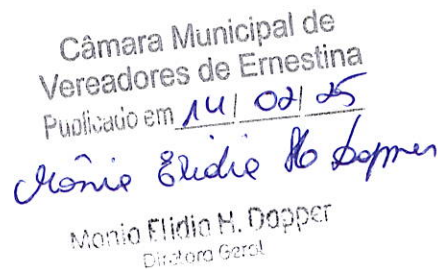 Câmara Municipal de
Vereadores de Ernestina
Publicado em 14/02/25
Mônia Elidia H. Dapper
Monia Elidia H. Dapper
Diretora Geral